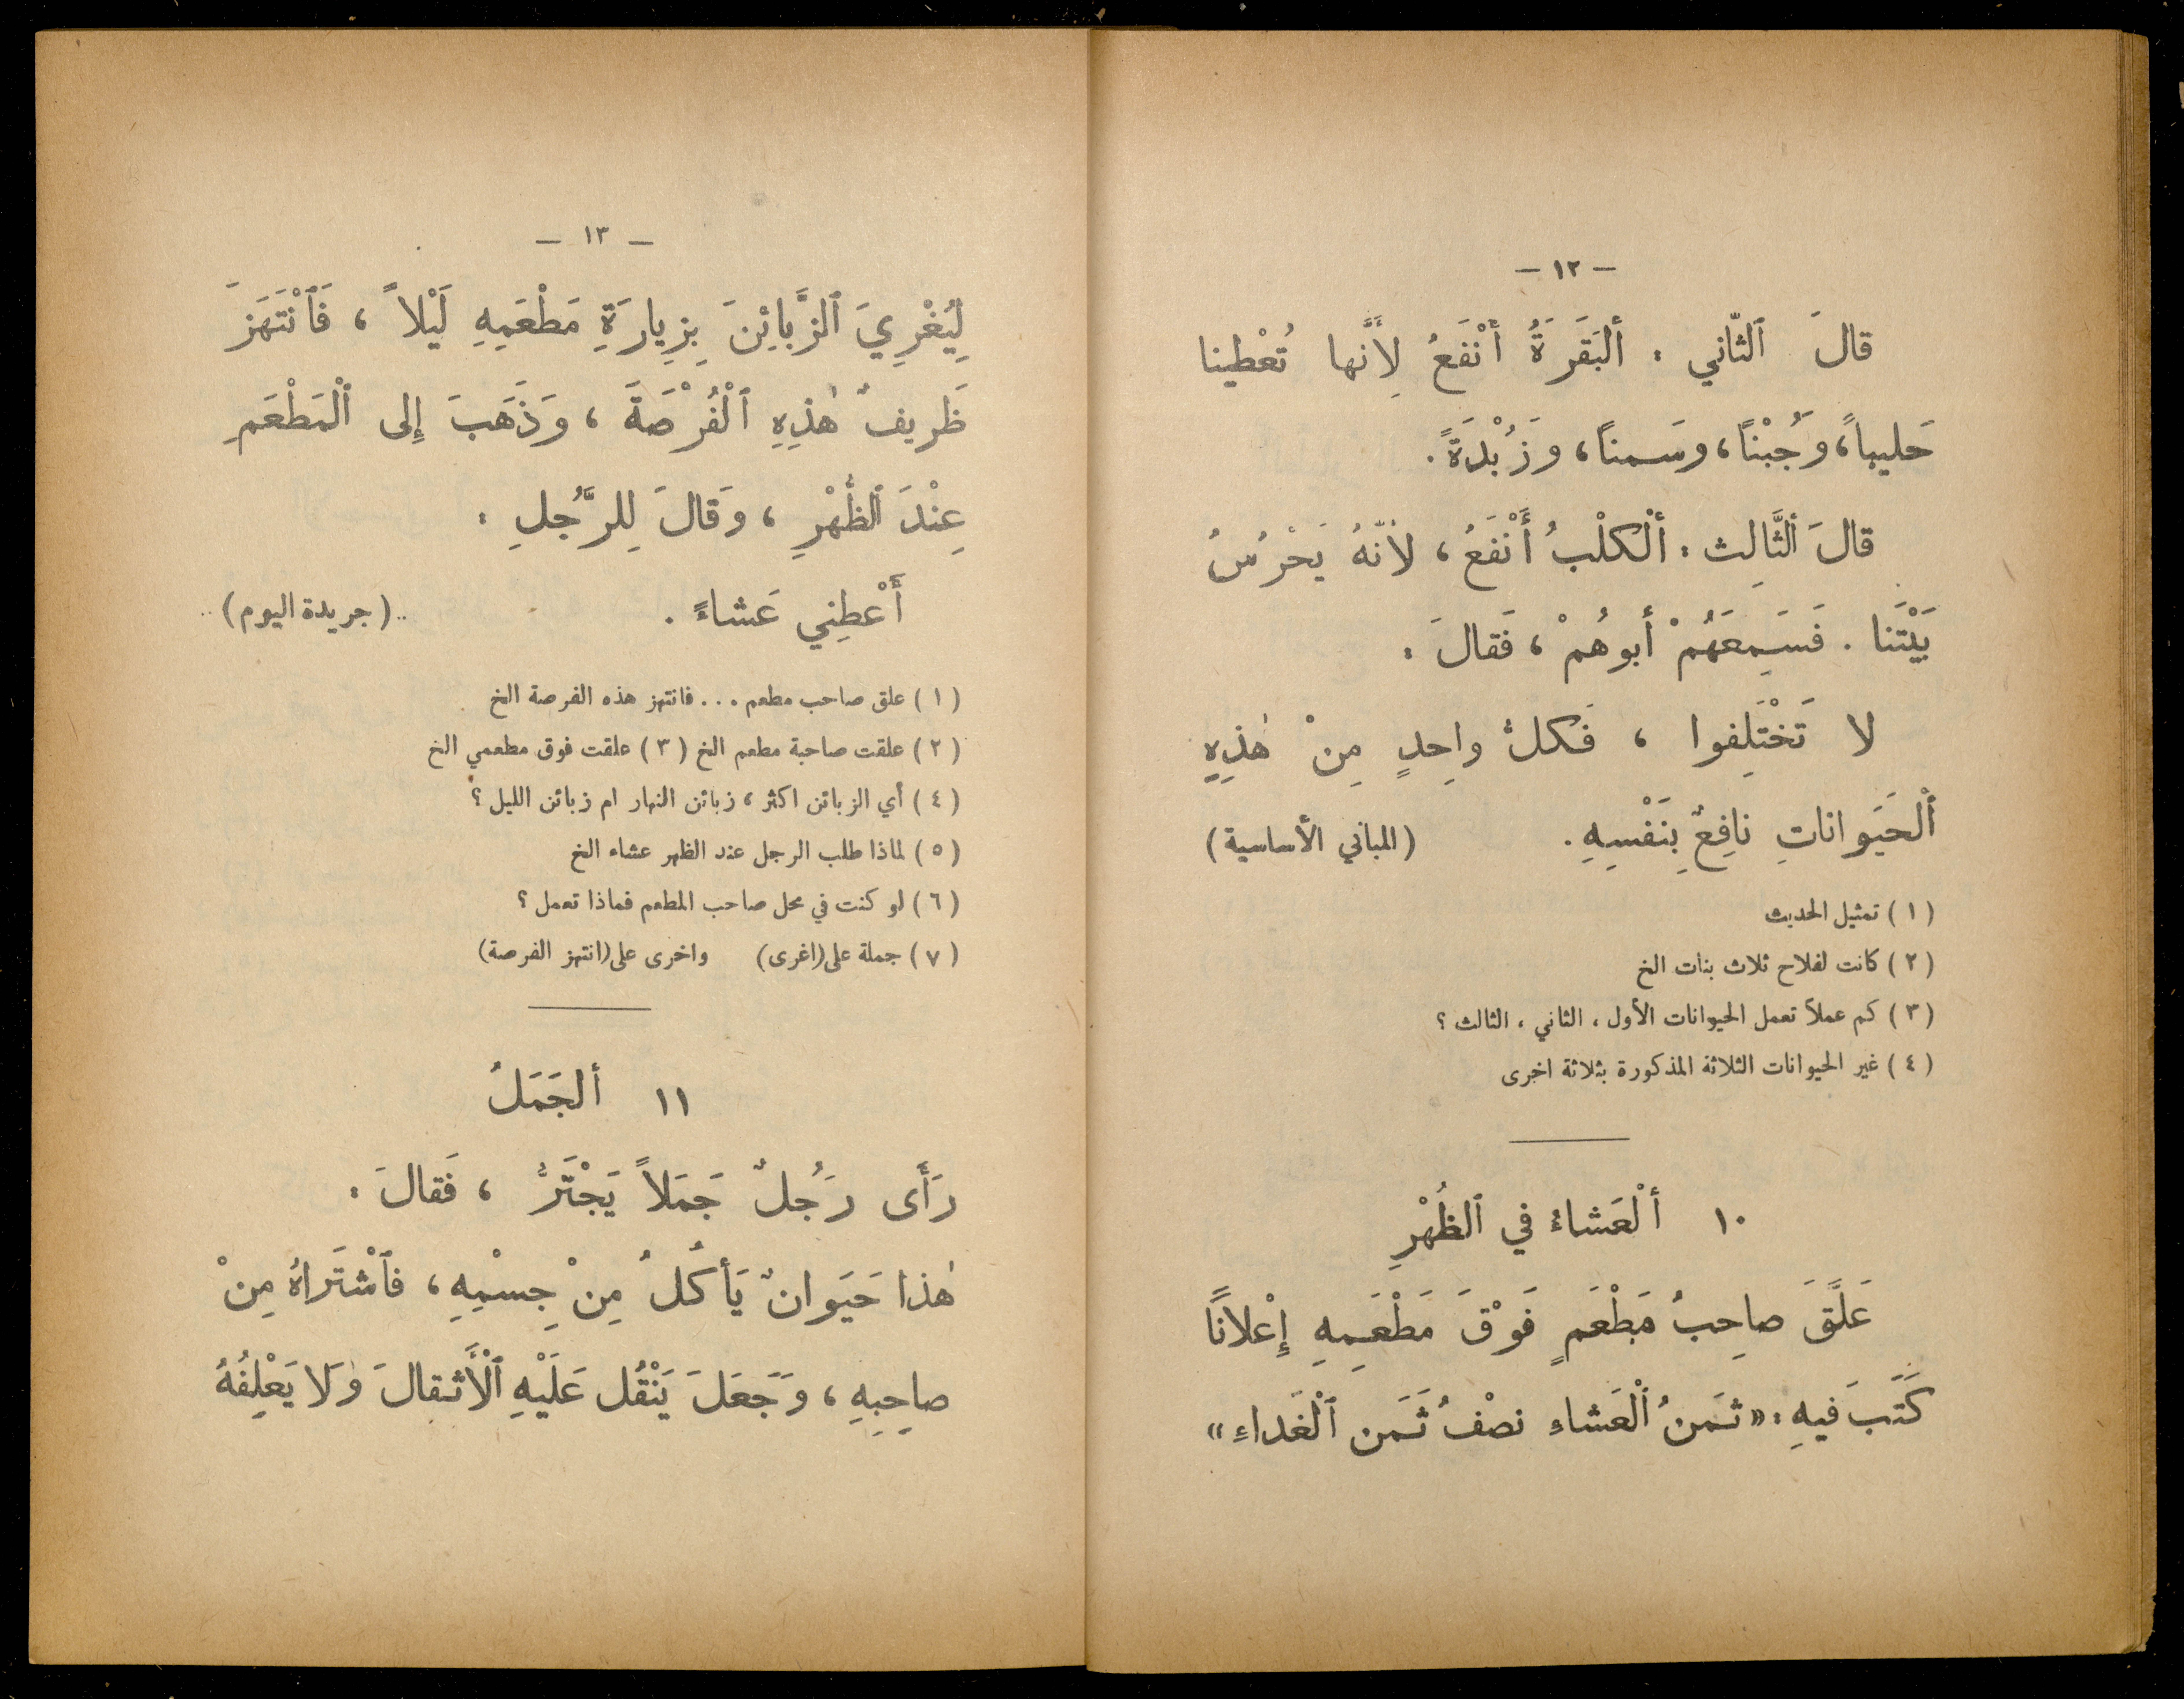 — ١٢ —
قالَ ٱلثّاني : أَلبَقَرَةُ أَنْفَعُ لِأَنَّها تُعْطينا
حَليباً، وَجُبْنًا، وسَمنًا، وَزُبْدَةً.
قالَ ٱلثَّالِث : أَلْكلْبُ أَنْفَعُ، لأنّهُ يَحْرُسُ
بَيْتَنا . فَسَمِعَهُمْ أَبوهُمْ، فَقالَ :
لا تَخْتَلِفوا ، فَكلُّ واحِدٍ مِنْ هٰذِهِ
أَلْحَيَواناتِ نافِعٌ بِنَفْسِهِ. (المباني الأساسية)
(١) تمثيل الحديث
(٢) كانت لفلاح ثلاث بنات الخ
(٣) كم عملاً تعمل الحيوانات الأول ، الثاني ، الثالث ؟
(٤) غير الحيوانات الثلاثة المذكورة بثلاثة اخرى
١٠ أَلْعَشاءُ في ٱلظُهْرِ
عَلَّقَ صاحِبُ مَطْعَمٍ فَوْقَ مَطْعَمِهِ إِعْلانًا
كَتَبَ فيهِ : «ثَمَنُ ٱلْعَشاءِ نصْفُ ثَمَن ٱلْغَداءِ»
— ١٣ —
لِيُغْرِيَ ٱلزَّبائِنَ بِزِيارَةِ مَطْعَمِهِ لَيْلاً ، فَٱنْتَهَزَ
ظَريفٌ هٰذِهِ ٱلْفُرْصَةَ ، وَذَهَبَ إِلى ٱلْمَطْعَمِ
عِنْدَ ٱلظُّهْرِ ، وَقالَ لِلرَّجُلِ :
أَعْطِني عَشاءً . ..(جريدة اليوم)..
(١) علق صاحب مطعم ... فانتهز هذه الفرصة الخ
(٢) علقت صاحبة مطعم الخ (٣) علقت فوق مطعمي الخ
(٤) أي الزبائن اكثر ، زبائن النهار ام زبائن الليل ؟
(٥) لماذا طلب الرجل عند الظهر عشاء الخ
(٦) لو كنت في محل صاحب المطعم فماذا تعمل ؟
(٧) جملة على (اغرى) واخرى على (انتهز الفرصة)
١١ أَلجَمَلُ
رَأَى رَجُلٌ جَمَلاً يَجْتَرُّ ، فَقالَ :
هٰذا حَيَوانٌ يَأكُلُ مِنْ جِسْمِهِ، فٱشْتَراهُ مِنْ
صاحِبِهِ ، وَجَعَلَ يَنْقُل عَلَيْهِ ٱلْأَثقالَ وَلَا يَعْلِفُهُ